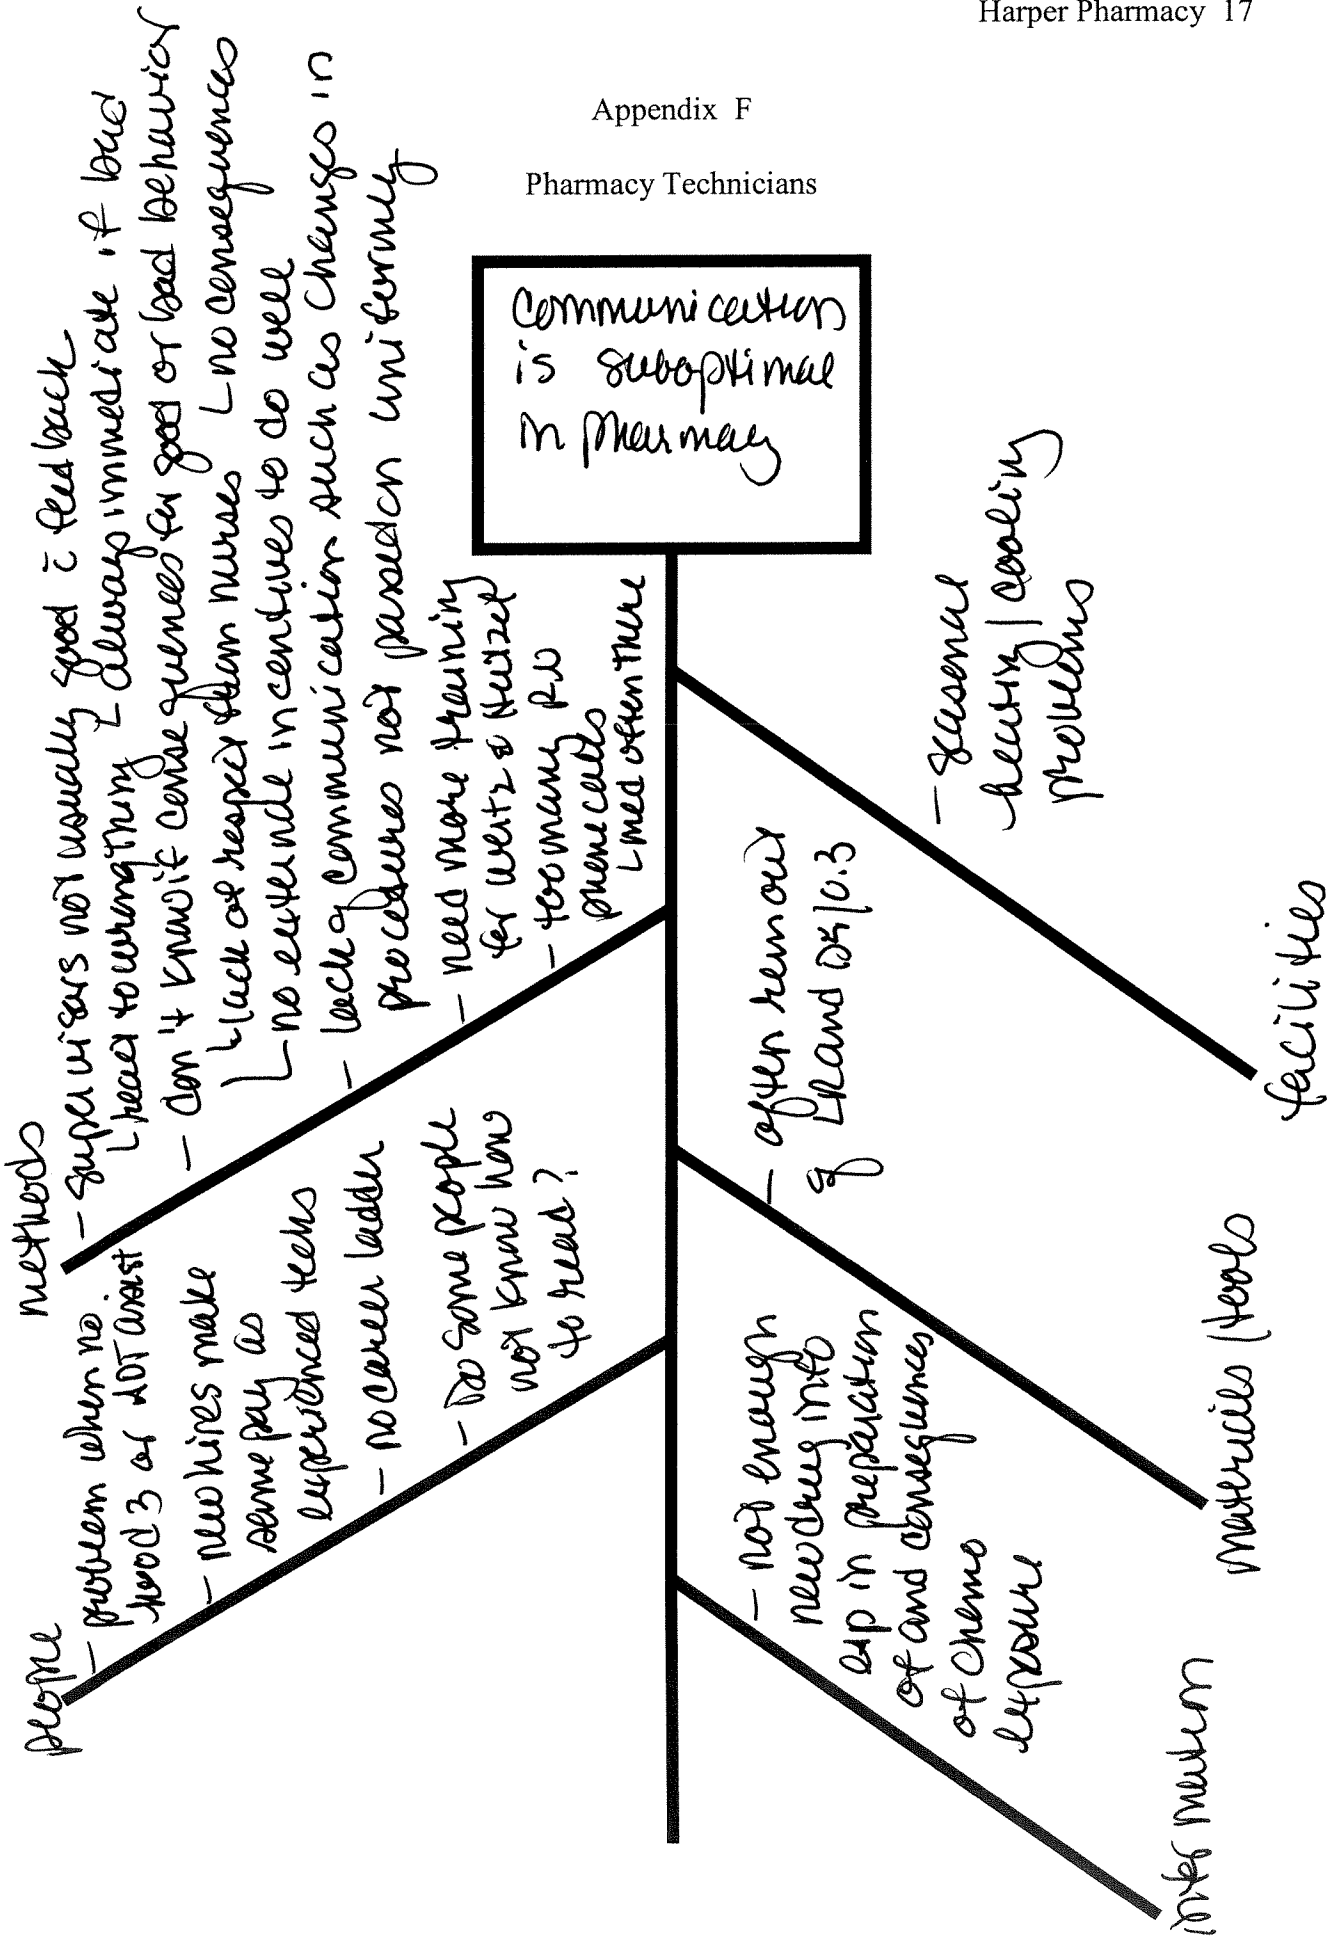 Harper Pharmacy 17
Appendix F
Pharmacy Technicians
Communication
is suboptimal
in pharmacy
methods
- supervisors not usually good c̄ feedback
└ react to wrong thing
└ always immediate if bad
- don't know if consequences for good or bad behavior
└ lack of respect from nurses
└ no consequences
└ no extrinsic incentives to do well
- lack of communication such as changes in
procedures not passed on uniformly
- need more training
for
- too many RN
phone calls
└ med often there
people
- problem when no
hood 3 or assist
- new hires make
same pay as
experienced techs
- no career ladder
- Do some people
not know how
to read?
facilities
- seasonal
heating / cooling
problems
materials / tools
- often run out
of LR and D5/0.3
information
- not enough
new drug info
esp in preparation
of and consequences
of chemo
exposure